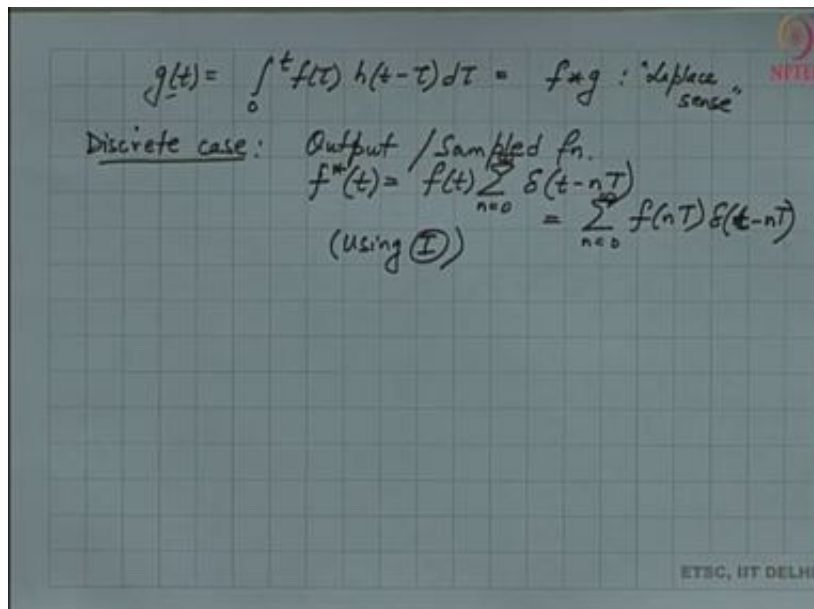 g(t) = ∫₀ᵗ f(τ) h(t-τ) dτ = f*g : "Laplace sense"
NPTEL
Discrete case: Output / Sampled fn.
f*(t) = f(t) ∑_{n=0}^{∞} δ(t-nT)
= ∑_{n=0}^{∞} f(nT) δ(t-nT)
(Using Ⓘ)
ETSC, IIT DELHI